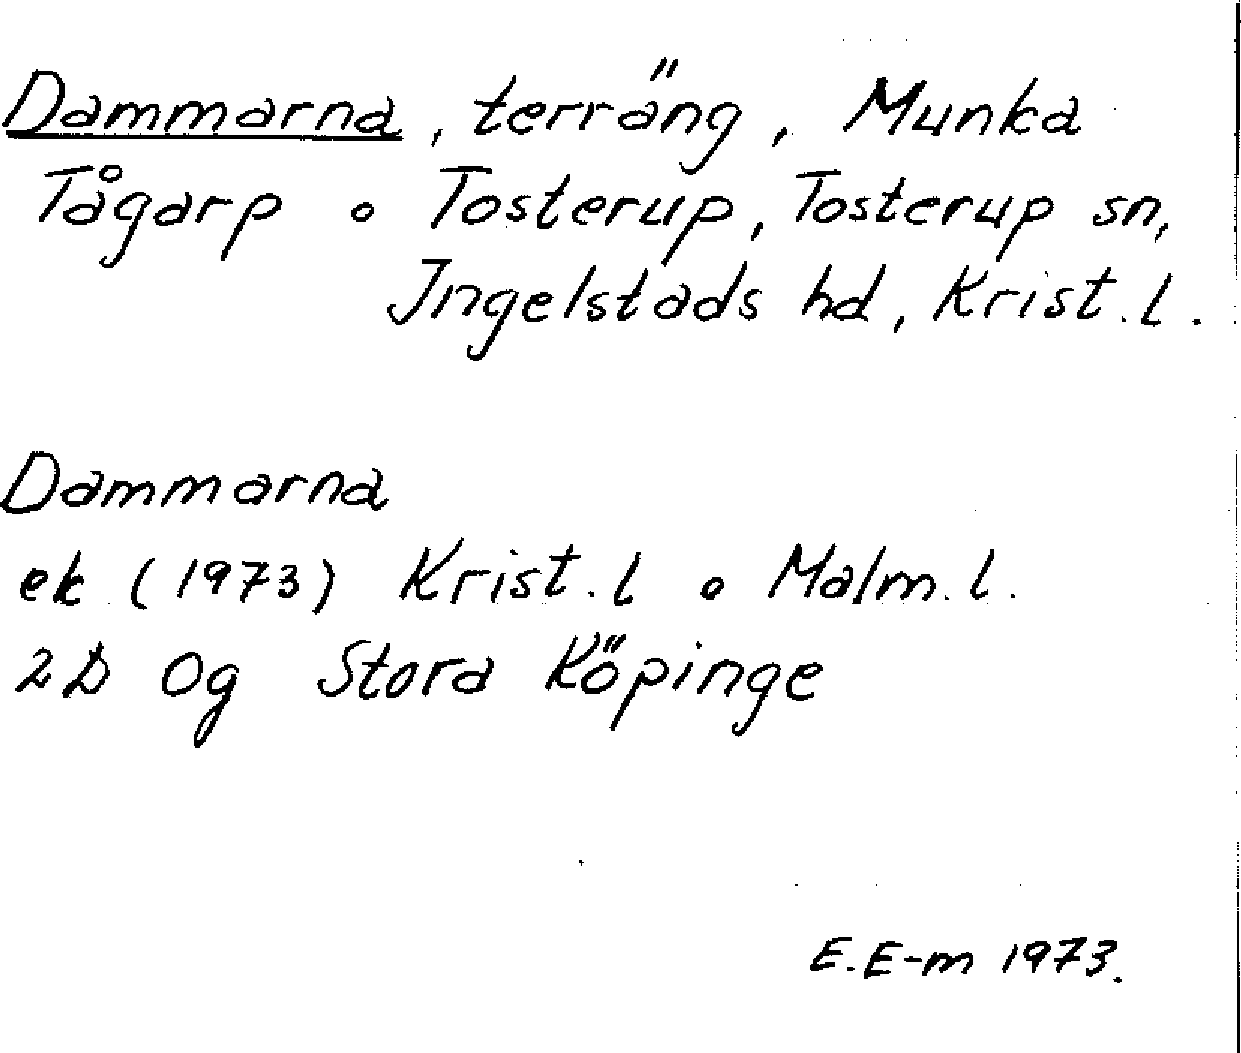 Dammarna, terräng, Munka
Tågarp o Tosterup, Tosterup sn,
Ingelstads hd, Krist. l.
Dammarna
ek (1973) Krist. l o Malm. l.
2D Og Stora Köpinge
E. E-m 1973.